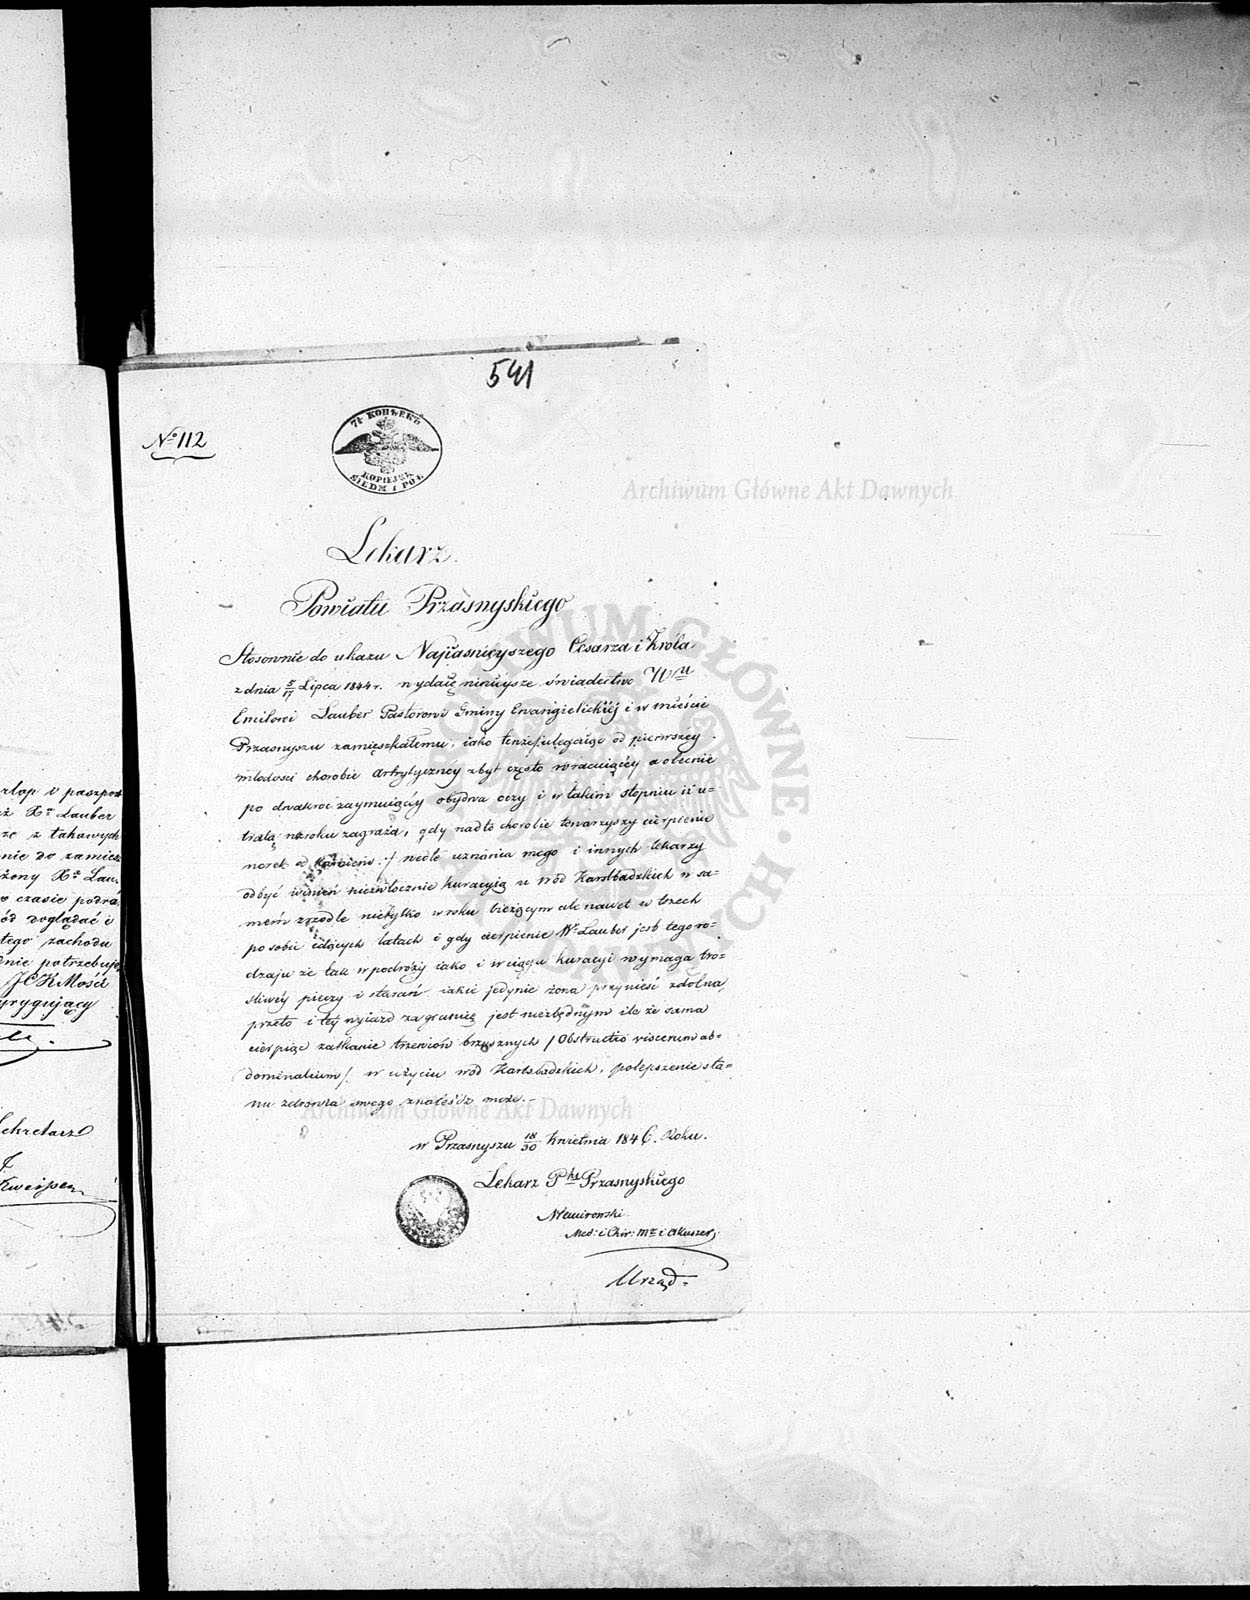 541
№ 112
7½ КОПѢЕКЪ
KOPIEJEK
SIEDM I PÓŁ
Archiwum Główne Akt Dawnych
Lekarz
Powiatu Przasnyskiego
Stosownie do ukazu Najiasnieyszego Cesarza i Króla
z dnia 5/17 Lipca 1844 r. wydaię ninieysze świadectwo
Emilowi Lauber Pastorowi Gminy Ewangielickiéj i w mieście
Przasnyszu zamięszkałemu, iako tenże ulegaiąc od pierwszéy
młodości chorobie artrytycznéy zbyt często wracaiącéy a obecnie
po dwakroć zaymuiącéy obydwa oczy i w takim stopniu iż u-
tratą wzroku zagraża, gdy nadto chorobie towarzyszy cierpienie
nerek wedle uznania mego i innych lekarzy
odbyć winien niezwłocznie kuracyią u wód Karlsbadzkich w sa-
mém zrzódle nietylko w roku bieżącym ale nawet w trzech
po sobie idących latach i gdy cierpienie Wº Lauber jest tego ro-
dzaju że tak w podróży iako i w ciągu kuracyi wymaga tro-
skliwéy pieczy i starań iakie jedynie żona przynieść zdolna,
przeto i téy wyiazd za granicę jest niezbędnym ile że sama
cierpiąc zatkanie trzewiów brzusznych /Obstructio viscerum ab-
dominalium/ w użyciu wód Karlsbadzkich, polepszenie sta-
nu zdrowia swego znaleśdz może.-
Archiwum Główne Akt Dawnych
w Przasnyszu 18/30 Kwietnia 1846. Roku.
Lekarz Ptu Przasnyskiego
Niemirowski
Med: i Chir: Mr i Akuszer
Urząd
ARCHIWUM GŁÓWNE AKT DAWNYCH
i paszport
Lauber
z takowych
nie do zamiesz
żony Lau-
czasie podró
ód doglądać i
tego zachodu
potrzebuje
JCKMości
Sekretarz